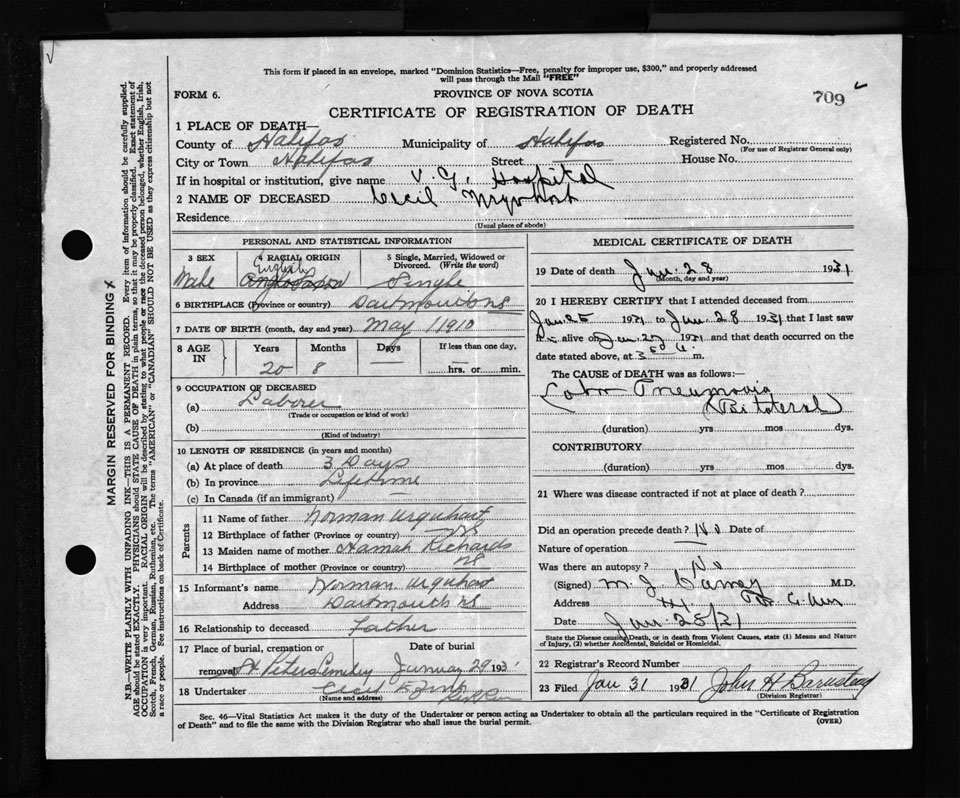 This form if placed in an envelope, marked "Dominion Statistics—Free, penalty for improper use, $300," and properly addressed
will pass through the Mail "FREE"
FORM 6.
PROVINCE OF NOVA SCOTIA
709
CERTIFICATE OF REGISTRATION OF DEATH
1 PLACE OF DEATH—
County of Halifax Municipality of Halifax Registered No.
(For use of Registrar General only)
City or Town Halifax Street House No.
If in hospital or institution, give name V. G. Hospital
2 NAME OF DECEASED Cecil
Residence
(Usual place of abode)
PERSONAL AND STATISTICAL INFORMATION
3 SEX 4 RACIAL ORIGIN 5 Single, Married, Widowed or
Divorced. (Write the word)
English
Male Single
6 BIRTHPLACE (Province or country) Dartmouth NS
7 DATE OF BIRTH (month, day and year) May 1910
8 AGE IN Years Months Days If less than one day,
20 8 — hrs. or min.
9 OCCUPATION OF DECEASED
(a) Laborer
(Trade or occupation or kind of work)
(b)
(Kind of industry)
10 LENGTH OF RESIDENCE (in years and months)
(a) At place of death 3 Days
(b) In province Lifetime
(c) In Canada (if an immigrant)
Parents
11 Name of father Norman Urquhart
12 Birthplace of father (Province or country) NS
13 Maiden name of mother Hannah Richards
14 Birthplace of mother (Province or country) NS
15 Informant's name Norman Urquhart
Address Dartmouth NS
16 Relationship to deceased Father
17 Place of burial, cremation or Date of burial
removal St Peters Cemetery January 29 193
18 Undertaker Cecil
(Name and address)
MEDICAL CERTIFICATE OF DEATH
19 Date of death Jan. 28 1931
(Month, day and year)
20 I HEREBY CERTIFY that I attended deceased from
Jan 25 1931 to Jan. 28 1931 that I last saw
alive on Jan. 27 1931 and that death occurred on the
date stated above, at 3 m.
The CAUSE of DEATH was as follows:—
Lobar Pneumonia
(Bilateral)
(duration) yrs mos dys.
CONTRIBUTORY
(duration) yrs mos dys.
21 Where was disease contracted if not at place of death?
Did an operation precede death? No Date of
Nature of operation
Was there an autopsy? No
(Signed) M. J. M.D.
Address
Date Jan. 28/31
State the Disease causing Death, or in death from Violent Causes, state (1) Means and Nature
of Injury, (2) whether Accidental, Suicidal or Homicidal.
22 Registrar's Record Number
23 Filed Jan 31 1931 John H Barnstead
(Division Registrar)
Sec. 46—Vital Statistics Act makes it the duty of the Undertaker or person acting as Undertaker to obtain all the particulars required in the "Certificate of Registration
of Death" and to file the same with the Division Registrar who shall issue the burial permit.
(OVER)
MARGIN RESERVED FOR BINDING
N.B.—WRITE PLAINLY WITH UNFADING INK—THIS IS A PERMANENT RECORD. Every item of information should be carefully supplied.
AGE should be stated EXACTLY. PHYSICIANS should STATE CAUSE OF DEATH in plain terms, so that it may be properly classified. Exact statement of
OCCUPATION is very important. RACIAL ORIGIN will be described by stating to what people or race the deceased person belonged, whether English, Irish,
Scotch, French, German, Russian, Ruthenian, etc. The terms "AMERICAN" or "CANADIAN" SHOULD NOT BE USED as they express citizenship but not
a race or people. See instructions on back of Certificate.